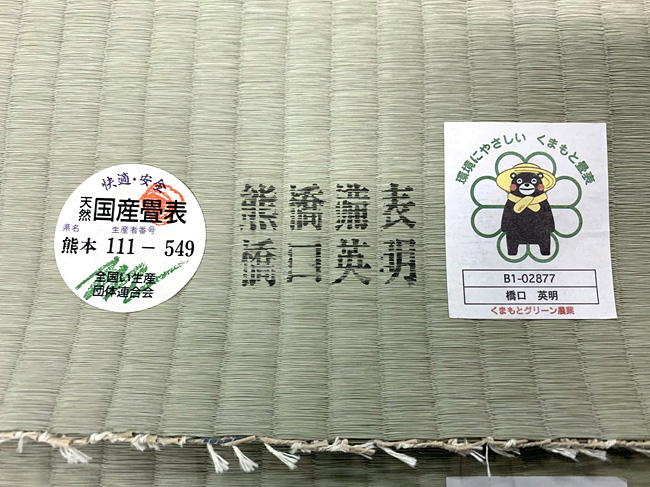 快適・安全
天然
国産畳表
県名 生産者番号
熊本 111-549
全国い生産
団体連合会
橋口英明
環境にやさしい くまもと農業
B1-02877
橋口 英明
くまもとグリーン農業